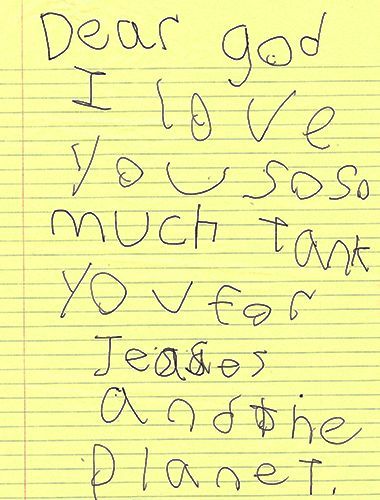 Dear god
I love
you soso
much Tank
you for
Jeases
andthe
planeT.